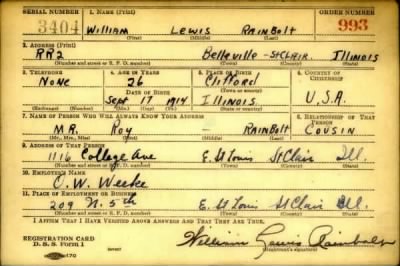 SERIAL NUMBER 1. NAME (Print) ORDER NUMBER
3404 WILLIAM LEWIS RAINBOLT 993
(First) (Middle) (Last)
2. ADDRESS (Print)
RR2 Belleville - St Clair. Illinois
(Number and street or R. F. D. number) (Town) (County) (State)
3. TELEPHONE 4. AGE IN YEARS 5. PLACE OF BIRTH 6. COUNTRY OF CITIZENSHIP
None 26 Clifford
DATE OF BIRTH (Town or county)
Sept 17 1914 Illinois U.S.A.
(Exchange) (Number) (Mo.) (Day) (Yr.) (State or country)
7. NAME OF PERSON WHO WILL ALWAYS KNOW YOUR ADDRESS 8. RELATIONSHIP OF THAT PERSON
MR. Roy RAINBOLT COUSIN
(Mr., Mrs., Miss) (First) (Middle) (Last)
9. ADDRESS OF THAT PERSON
1116 College Ave E. St Louis St Clair Ill.
(Number and street or R. F. D. number) (Town) (County) (State)
10. EMPLOYER'S NAME
O. W. Weeke
11. PLACE OF EMPLOYMENT OR BUSINESS
209 N. 5th E. St Louis St Clair Ill.
(Number and street or R. F. D. number) (Town) (County) (State)
I AFFIRM THAT I HAVE VERIFIED ABOVE ANSWERS AND THAT THEY ARE TRUE.
REGISTRATION CARD
D. S. S. Form 1 William Lewis Rainbolt
(Registrant's signature)